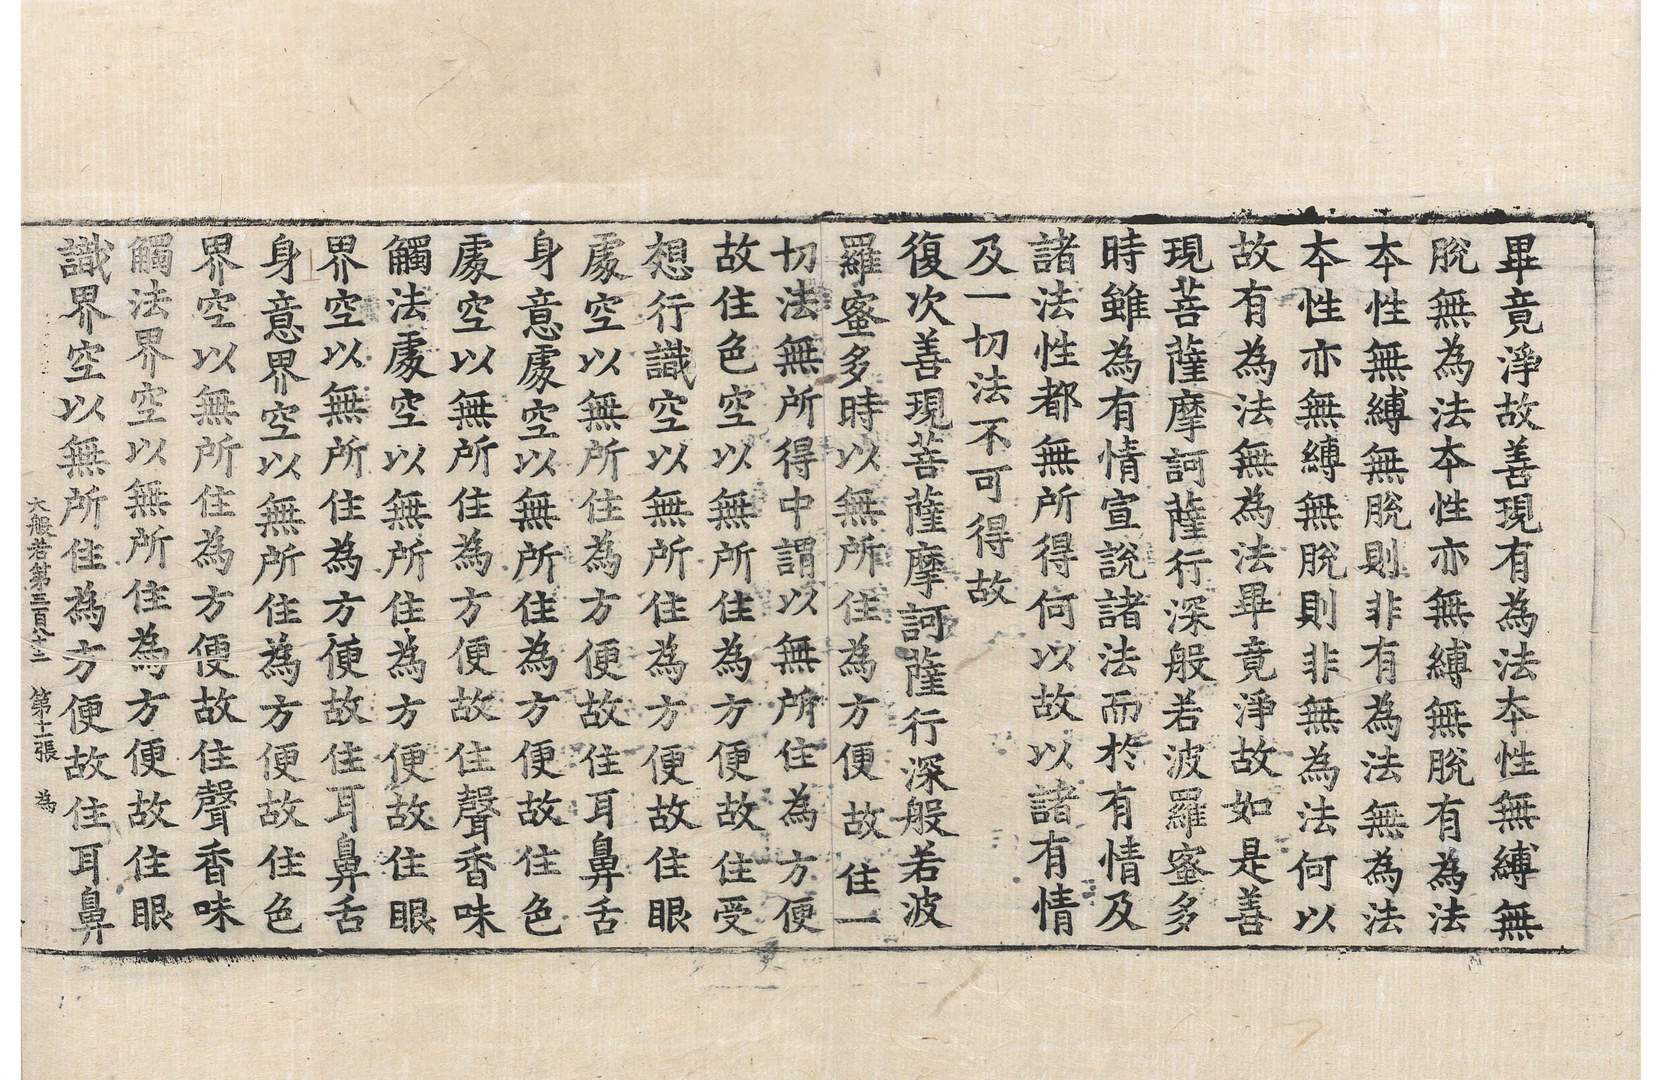 畢竟淨故善現有為法本性無縛無
脫無為法本性亦無縛無脫有為法
本性無縛無脫則非有為法無為法
本性亦無縛無脫則非無為法何以
故有為法無為法畢竟淨故如是善
現菩薩摩訶薩行深般若波羅蜜多
時雖為有情宣說諸法而於有情及
諸法性都無所得何以故以諸有情
及一切法不可得故
復次善現菩薩摩訶薩行深般若波
羅蜜多時以無所住為方便故住一
切法無所得中謂以無所住為方便
故住色空以無所住為方便故住受
想行識空以無所住為方便故住眼
處空以無所住為方便故住耳鼻舌
身意處空以無所住為方便故住色
處空以無所住為方便故住聲香味
觸法處空以無所住為方便故住眼
界空以無所住為方便故住耳鼻舌
身意界空以無所住為方便故住色
界空以無所住為方便故住聲香味
觸法界空以無所住為方便故住眼
識界空以無所住為方便故住耳鼻
大般若第三百八十二 第十一張 為